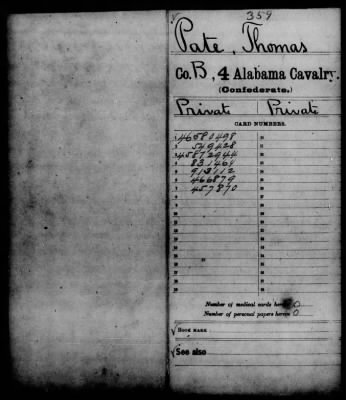 359
Pate, Thomas
Co. B, 4 Alabama Cavalry.
(Confederate.)
Private Private
CARD NUMBERS.
1 46580498
2 549428
3 45872944
4 831464
5 913112
6 466879
7 457870
Number of medical cards herein 0
Number of personal papers herein 0
BOOK MARK:
See also